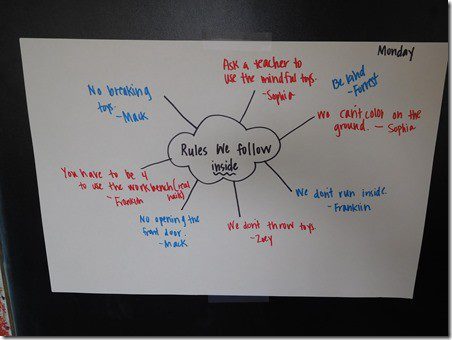 Monday
Ask a teacher to
use the mindful toys.
-Sophia
Be kind
-Forrest
No breaking
toys.
-Mack
We can't color on the
ground. - Sophia
Rules We follow
inside
You have to be 4
to use the workbench (real
nails)
- Franklin
We don't run inside.
- Franklin
No opening the
front door.
-Mack
We don't throw toys.
-Zoey